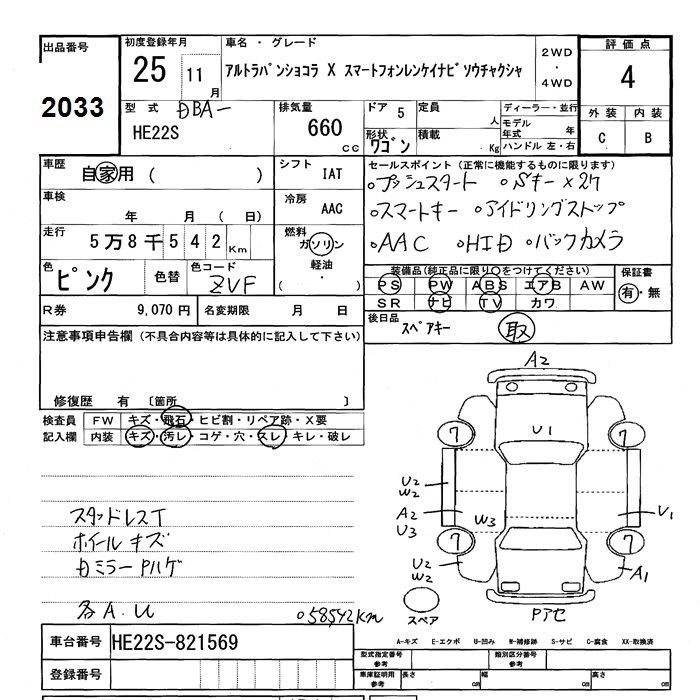 出品番号
2033
初度登録年月
25 11月
車名・グレード
アルトラパンショコラ X スマートフォンレンケイナビソウチャクシャ
2WD
・
4WD
評価点
4
外装 内装
C B
型式
DBA-
HE22S
排気量
660
cc
ドア 5
定員
人
形状
ワゴン
積載
Kg
ディーラー・並行
モデル
年式 年
ハンドル 左・右
車歴
自家用 ( )
シフト
IAT
車検
年 月 ( 日)
冷房
AAC
走行
5万8千542Km
燃料
ガソリン
軽油
( ・ )
色
ピンク
色替
色コード
ZVF
R券
9,070 円
名変期限
月 日
セールスポイント (正常に機能するものに限ります)
。プッシュスタート 。Sキー×2ケ
。スマートキー 。アイドリングストップ
。AAC 。HID 。バックカメラ
装備品(純正品に限り○をつけてください)
PS PW ABS エアB AW
SR ナビ TV カワ
保証書
有・無
後日品
スペアキー
取
注意事項申告欄 (不具合内容等は具体的に記入して下さい)
修復歴 有 〔箇所 〕
検査員
記入欄
FW キズ・飛石・ヒビ割・リペア跡・X要
内装 キズ・汚レ・コゲ・穴・スレ・キレ・破レ
スタッドレスT
ホイールキズ
Dミラー Pハゲ
各A.U
。58542Km
A2
7
U1
7
U2
W2
A2
U3
W3
U1
7
7
U2
W2
A1
スペア
Pアセ
A-キズ E-エクボ U-凹み W-補修跡 S-サビ C-腐食 XX-取換済
車台番号
HE22S-821569
登録番号
型式指定番号
参考
類別区分番号
参考
車庫証明用
参考
長さ
cm
幅
cm
高さ
cm